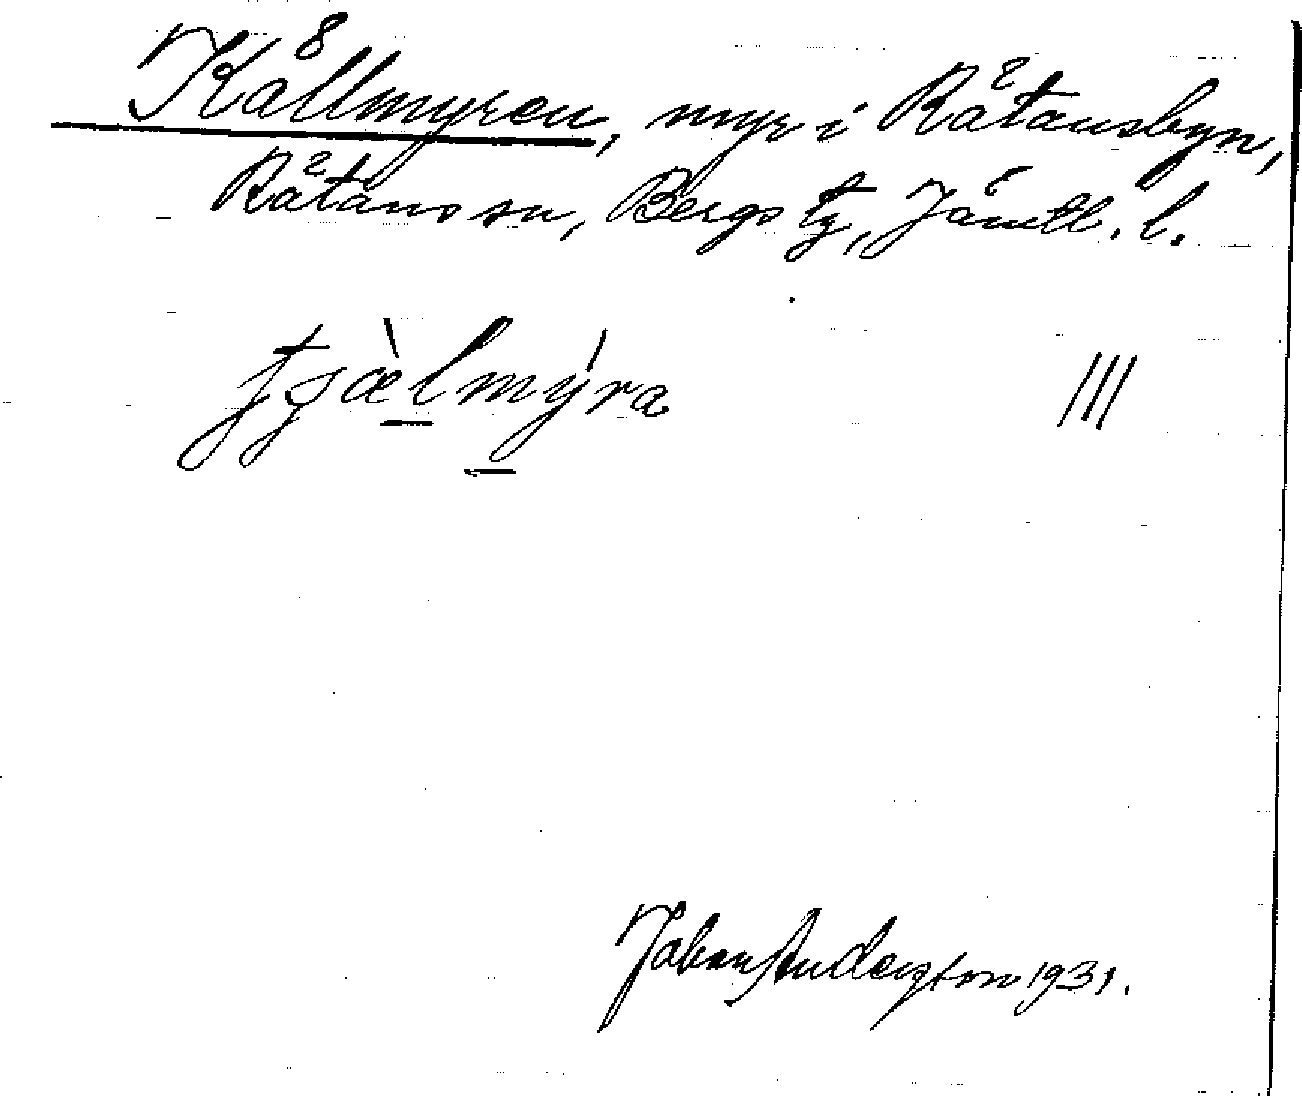 Källmyren, myr i Rätansbyn,
Rätans sn, Bergs tg, Jämtl. l.
tjæ̀lmýra III
Johan Andersson 1931.